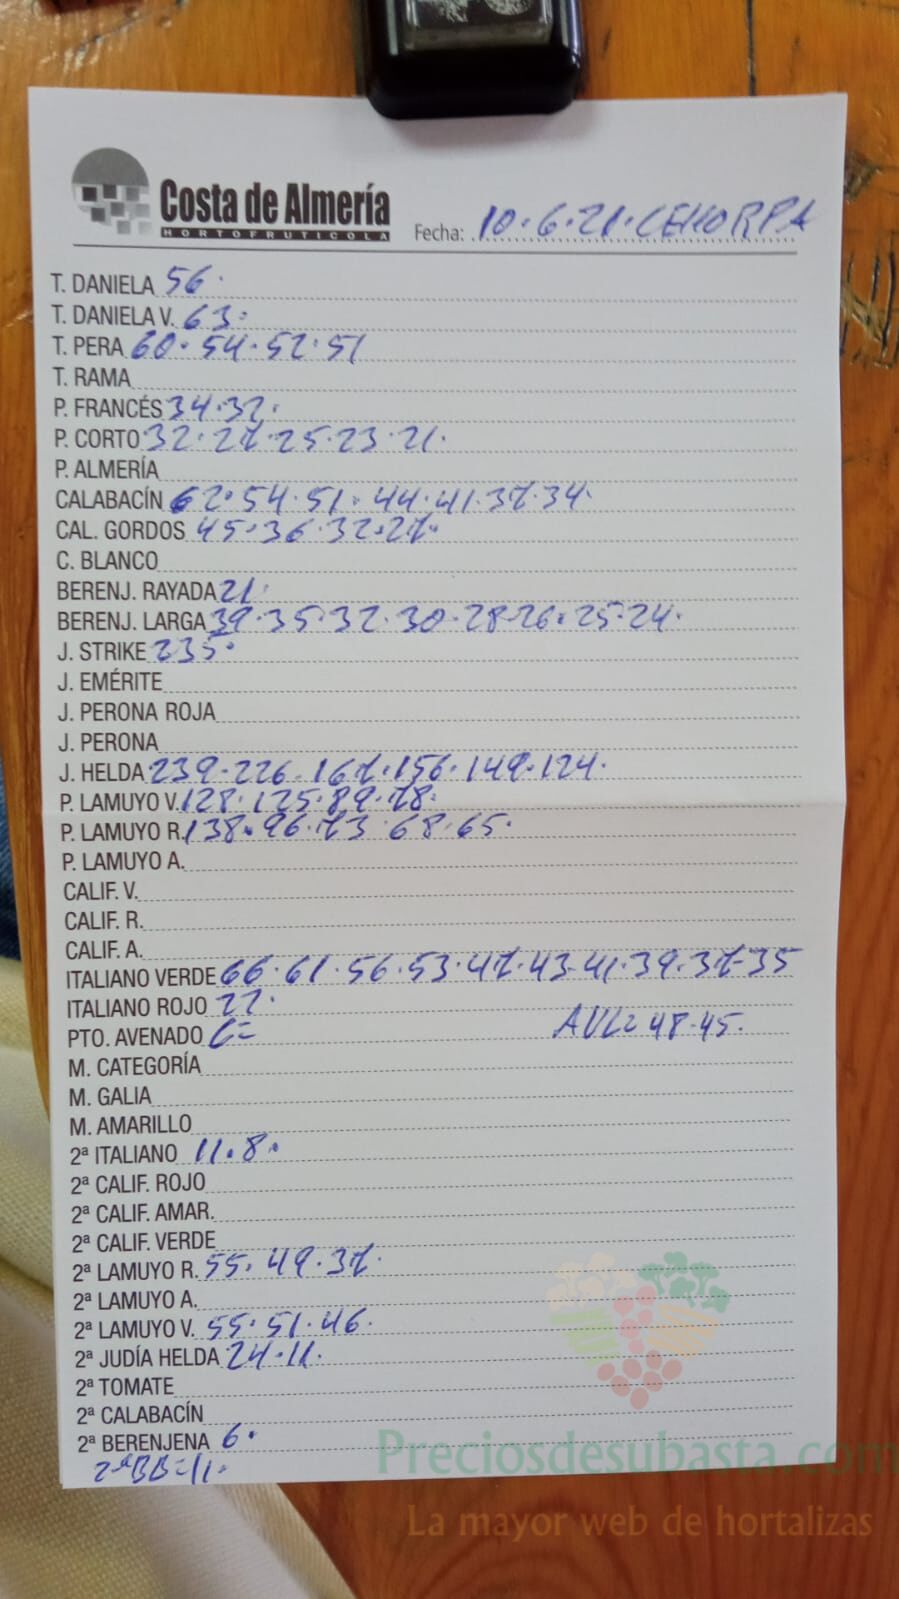 Costa de Almería
HORTOFRUTICOLA
Fecha: 10·6·21·CEHORPA
T. DANIELA 56·
T. DANIELA V. 63·
T. PERA 60·54·52·51
T. RAMA
P. FRANCÉS 34·32·
P. CORTO 32·27·25·23·21·
P. ALMERÍA
CALABACÍN 62·54·51·44·41·37·34·
CAL. GORDOS 45·36·32·27·
C. BLANCO
BERENJ. RAYADA 21·
BERENJ. LARGA 39·35·32·30·28·26·25·24·
J. STRIKE 235·
J. EMÉRITE
J. PERONA ROJA
J. PERONA
J. HELDA 239·226·167·156·149·124·
P. LAMUYO V. 128·125·89·78·
P. LAMUYO R. 138·96·73·68·65·
P. LAMUYO A.
CALIF. V.
CALIF. R.
CALIF. A.
ITALIANO VERDE 66·61·56·53·47·43·41·39·37·35
ITALIANO ROJO 22·
PTO. AVENADO C= AVL= 48·45·
M. CATEGORÍA
M. GALIA
M. AMARILLO
2ª ITALIANO 11·8·
2ª CALIF. ROJO
2ª CALIF. AMAR.
2ª CALIF. VERDE
2ª LAMUYO R. 55·49·37·
2ª LAMUYO A.
2ª LAMUYO V. 55·51·46·
2ª JUDÍA HELDA 24·11·
2ª TOMATE
2ª CALABACÍN
2ª BERENJENA 6·
2ªBB=11·
Preciosdesubasta.com
La mayor web de hortalizas